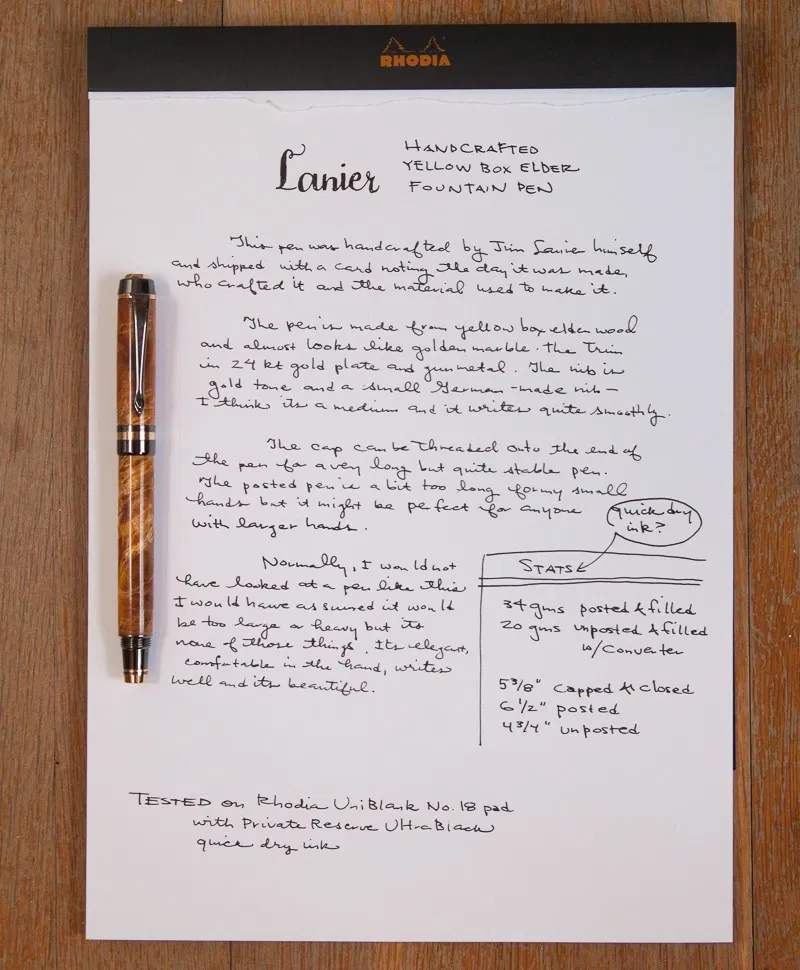 RHODIA
Lanier
HANDCRAFTED
YELLOW BOX ELDER
FOUNTAIN PEN
This pen was handcrafted by Jim Lanier himself
and shipped with a card noting the day it was made,
who crafted it and the material used to make it.
The pen is made from yellow box elder wood
and almost looks like golden marble. The trim
in 24 kt gold plate and gunmetal. The nib is
gold tone and a small German-made nib—
I think its a medium and it writes quite smoothly.
The cap can be threaded onto the end of
the pen for a very long but quite stable pen.
The posted pen is a bit too long for my small
hands but it might be perfect for anyone
with larger hands.
quick dry
ink?
Normally, I would not
have looked at a pen like this
I would have assumed it would
be too large or heavy but its
none of those things. Its elegant,
comfortable in the hand, writes
well and its beautiful.
STATS
34 gms posted & filled
20 gms unposted & filled
w/converter
5 3/8" capped & closed
6 1/2" posted
4 3/4" unposted
TESTED on Rhodia UniBlank No. 18 pad
with Private Reserve UltraBlack
quick dry ink